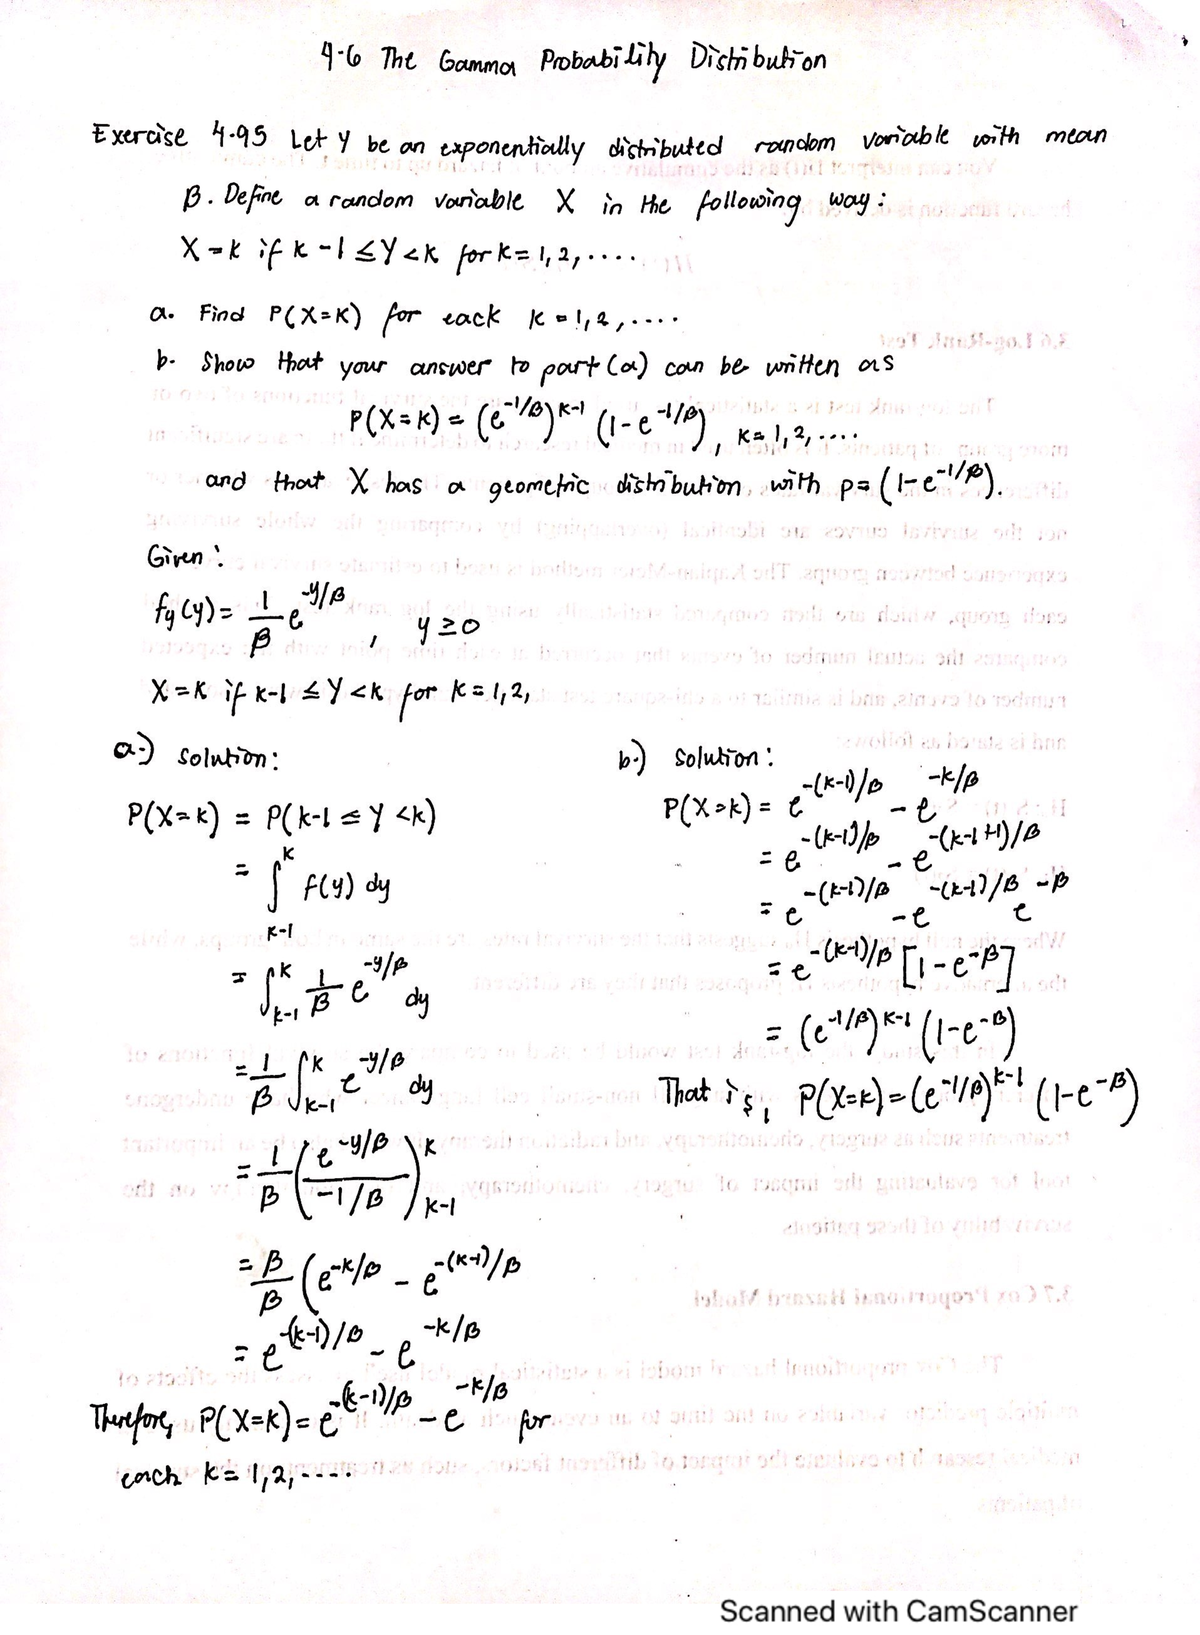 4-6 The Gamma Probability Distribution
Exercise 4.95 Let Y be an exponentially distributed random variable with mean
β. Define a random variable X in the following way:
X = k if k - 1 ≤ Y < k for k = 1, 2, ....
a. Find P(X=K) for eack k = 1, 2, ....
b. Show that your answer to part (a) can be written as
P(X=K) = (e^{-1/β})^{K-1} (1-e^{-1/β}), K = 1, 2, ....
and that X has a geometric distribution with p = (1-e^{-1/β}).
Given:
fy(y) = 1/β e^{-y/β}, y ≥ 0
X = K if k-1 ≤ Y < k for k = 1, 2,
a.) solution:
P(X=k) = P(k-1 ≤ Y < k)
= ∫_{K-1}^{K} f(y) dy
= ∫_{k-1}^{K} 1/β e^{-y/β} dy
= 1/β ∫_{k-1}^{K} e^{-y/β} dy
= 1/β (e^{-y/β} / -1/β)_{K-1}^{K}
= β/β (e^{-k/β} - e^{-(k-1)/β}
= e^{-(k-1)/β} - e^{-k/β}
Therefore, P(X=K) = e^{-(k-1)/β} - e^{-k/β} for
each k = 1, 2, ....
b.) solution:
P(X=k) = e^{-(k-1)/β} - e^{-k/β}
= e^{-(k-1)/β} - e^{-(k-1+1)/β}
= e^{-(k-1)/β} - e^{-(k-1)/β} e^{-β}
= e^{-(k-1)/β} [1-e^{-β}]
= (e^{-1/β})^{K-1} (1-e^{-β})
That is, P(X=k) = (e^{-1/β})^{k-1} (1-e^{-β})
Scanned with CamScanner